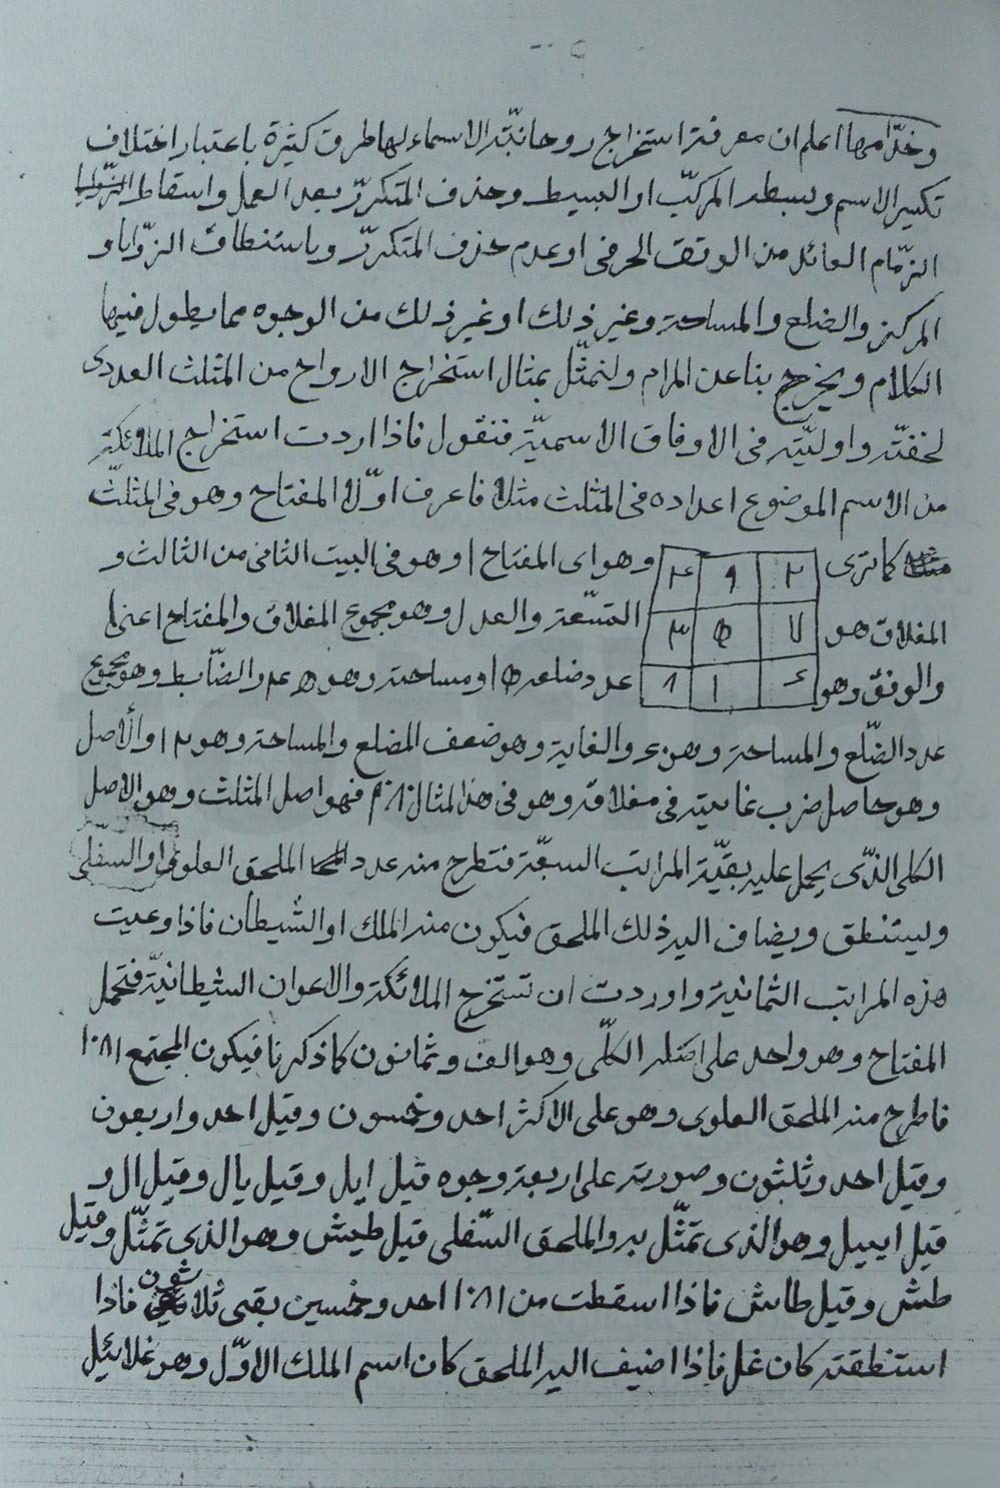 وخدّامها اعلم ان معرفة استخراج روحانيّة الاسماء لها طرق كثيرة باعتبار اختلاف
تكسير الاسم وبسطه المركّب او البسيط وحذف المتكرّر بعد العمل واسقاط
الزّمام العائد من الوفق الحرفى او عدم حذف المتكرّر وباستنطاق الزّوايا و
المركز والضلع والمساحة وغير ذلك او غير ذلك من الوجوه مما يطول فيها
الكلام ويخرج بنا عن المرام ولنمثّل بمثال استخراج الارواح من المثلث العددى
لخفّته واوليّته فى الاوفاق الاسميّة فنقول فاذا اردت استخراج الملائكة
من الاسم الموضوع اعداده فى المثلث مثلا فاعرف اوّلا المفتاح وهو فى المثلّث
كما ترى
٢ ٩ ٤
وهو اى المفتاح ا وهو فى البيت الثانى من الثالث و
المغلاق هو
٧ ٥ ٣
التسعة والعدل وهو مجموع المغلاق والمفتاح اعنى ١٠
والوفق وهو
٦ ١ ٨
عدد ضلعه ١٥ ومساحته وهو ٤٥ عدد الضّابط وهو مجموع
عدد الضّلع والمساحة وهو ٦٠ والغاية وهو ضعف المضلع والمساحة وهو ١٢٠ والأصل
وهو حاصل ضرب غايته فى مغلاقه وهو فى هذا المثال ١٠٨٠ فهو اصل المثلث وهو الاصل
الكلى الذّى يحمل عليه بقيّة المراتب السبعّة فتطرح منه عدد الملحق العلوى او السّفلى
ويستنطق ويضاف اليه ذلك الملحق فيكون منه الملك او الشيطان فاذا وعيت
هذه المراتب الثمانية واردت ان تستخرج الملائكة والاعوان الشيطانيّة فتحمل
المفتاح وهو واحد على اصله الكلّى وهو الف وثمانون كما ذكرنا فيكون المجتمع ١٠٨١
فاطرح منه الملحق العلوى وهو على الاكثر احد وخمسون وقيل احد واربعون
وقيل احد وثلثون وصورته على اربعة وجوه قيل ايل وقيل يال وقيل ال و
قيل اييل وهو الذى تمثّل به والملحق السّفلى قيل طيش وهو الذى تمثّل وقيل
طش وقيل طاش فاذا اسقطت من ١٠٨١ احد وخمسين بقى ثلاثون فاذا
استنطقته كان غل فاذا اضيف اليه الملحق كان اسم الملك الاوّل وهو غلائيل